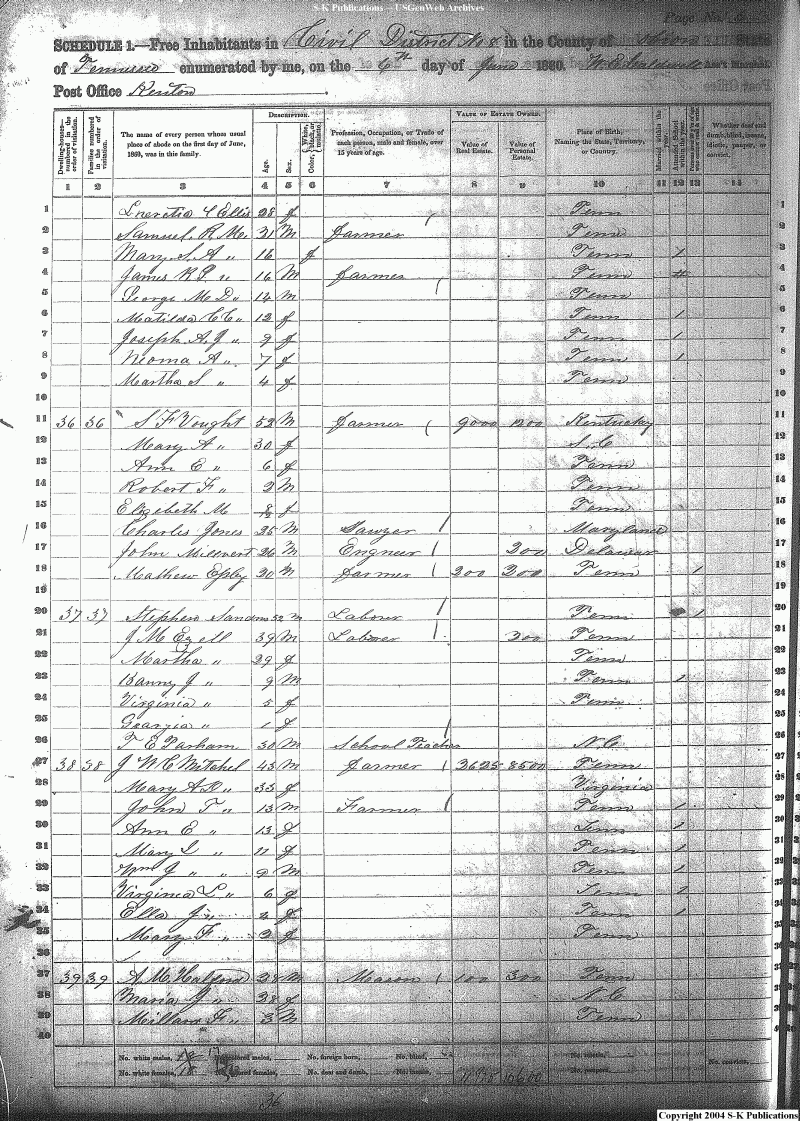 S-K Publications - USGenWeb Archives
Page No. 6
SCHEDULE 1.—Free Inhabitants in Civil District No 8 in the County of
of Tennessee enumerated by me, on the 6th day of June 1860.
Post Office Kenton
DESCRIPTION. VALUE OF ESTATE OWNED.
Dwelling-houses—numbered in the order of visitation. Families numbered in the order of visitation. The name of every person whose usual place of abode on the first day of June, 1860, was in this family. Age. Sex. Color, White, black, or mulatto. Profession, Occupation, or Trade of each person, male and female, over 15 years of age. Value of Real Estate. Value of Personal Estate. Place of Birth, Naming the State, Territory, or Country. Married within the year. Attended School within the year. Whether deaf and dumb, blind, insane, idiotic, pauper, or convict.
1 2 3 4 5 6 7 8 9 10 11 12 13 14
1 Lucretia Ellis 28 f Tenn 1
2 Samuel R. M. 31 M farmer Tenn 2
3 Mary S. A " 16 f Tenn 1 3
4 James R P " 16 M farmer Tenn 4
5 George M D " 14 m Tenn 5
6 Matilda C C " 12 f Tenn 1 6
7 Joseph A. J " 9 f Tenn 1 7
8 Neoma A " 7 f Tenn 1 8
9 Martha S " 4 f Tenn 9
10
11 36 36 S F Vought 52 M farmer 9000 1200 Kentucky 11
12 Mary A " 30 f S. C 12
13 Ann E " 6 f Tenn 13
14 Robert F " 2 M Tenn 14
15 Elizabeth M f Tenn 15
16 Charles Jones 25 M Sawyer Maryland 16
17 John 26 M Engneer 200 17
18 Mathew Epley 30 M farmer 200 200 Tenn 1 18
19
20 37 37 Stephen 52 M Labour Tenn 1 20
21 J M Ezell 39 M Laborer 300 Tenn 21
22 Martha " 29 f Tenn 22
23 J " 9 M Tenn 1 23
24 Virginia " 5 f Tenn 24
25 Georgia " 1 f 25
26 T E Parham 30 M School Teacher N. C 26
27 38 38 J W C Mitchel 43 M farmer 3625 8500 Tenn 27
28 Mary A R " 35 f Virginia 28
29 John T " 15 M Farmer Tenn 1 29
30 Ann E " 13 f Tenn 1 30
31 Mary L " 11 f Tenn 1 31
32 Wm J " " 9 M Tenn 1 32
33 Virginia L " 6 f Tenn 1 33
34 Ella J " 4 f Tenn 1 34
35 Mary F " 2 f Tenn 35
36
37 39 39 A. M. 28 M Mason 100 300 Tenn
38 Maria J " 28 f N C
39 F " 3 M Tenn
40
No. white males, colored males, No. foreign born, No. blind,
No. white females, 18 colored females, No. deaf and dumb, No. insane, No. convicts,
36
Copyright 2004 S-K Publications